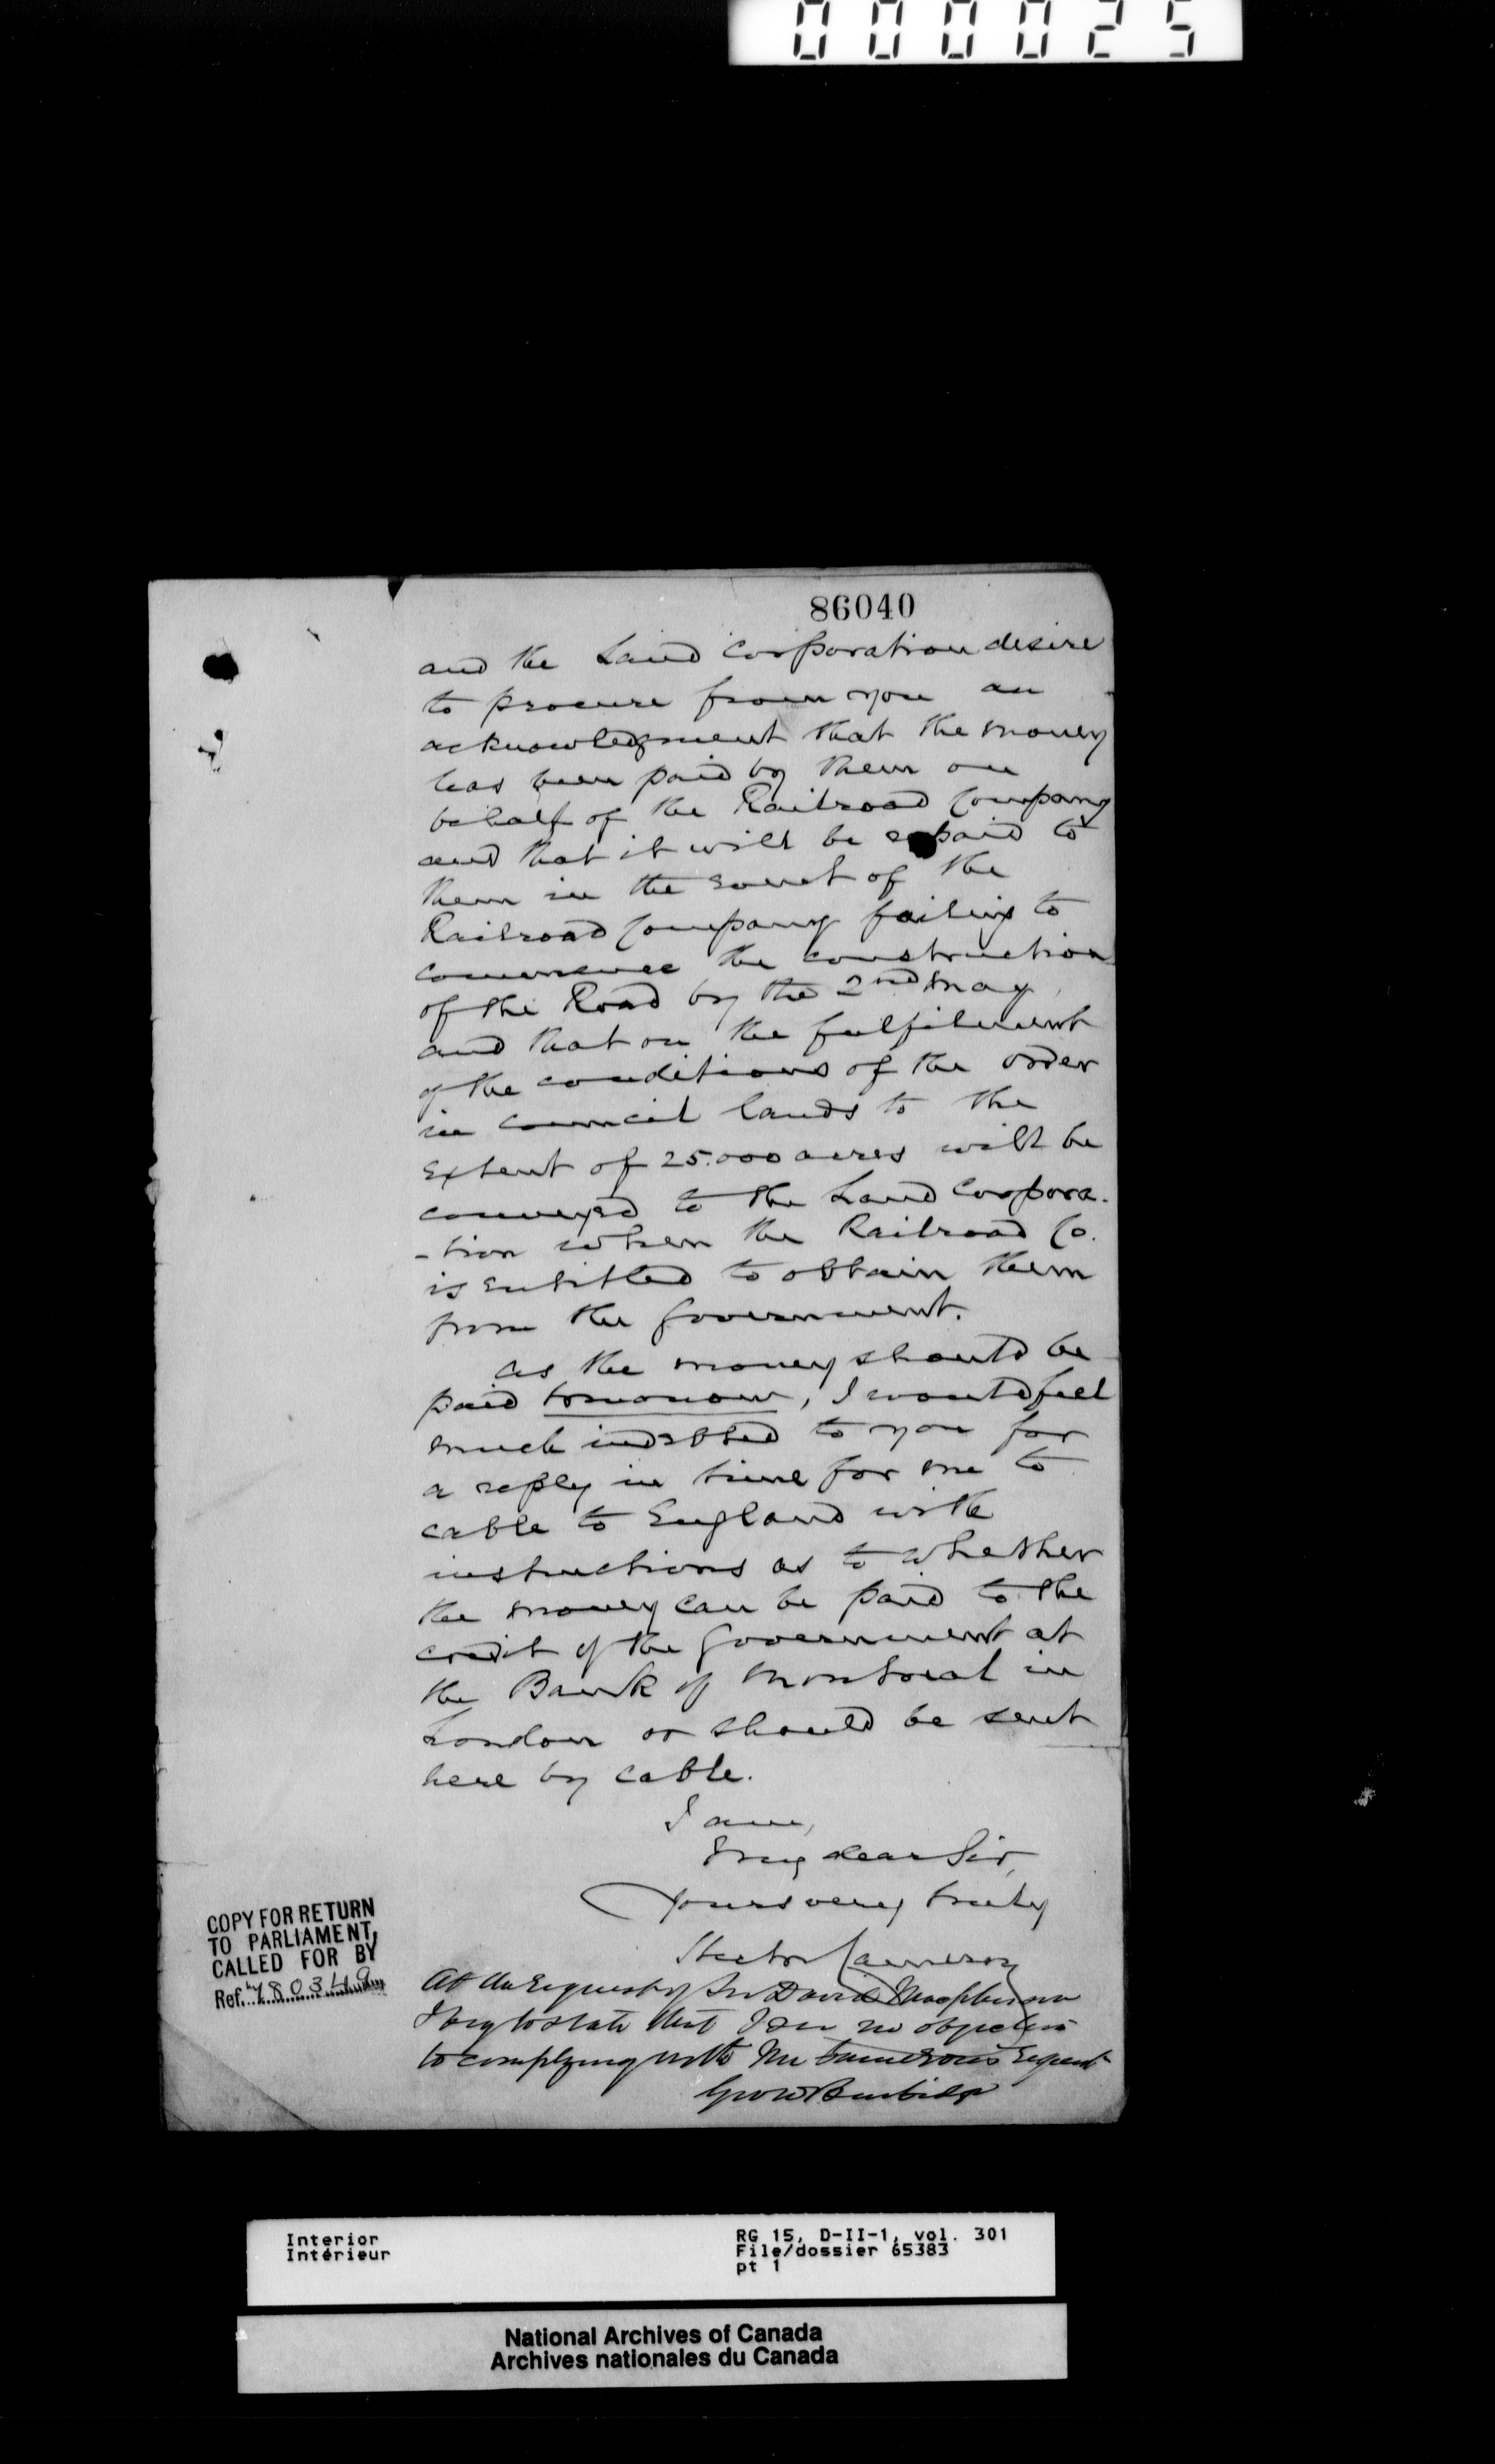 000025
86040
and the Land Corporation desire
to procure from you an
acknowledgment that the money
has been paid by them on
behalf of the Railroad Company
and that it will be repaid to
them in the event of the
Railroad Company failing to
commence the construction
of the Road by the 2nd May
and that on the fulfilment
of the conditions of the order
in council lands to the
extent of 25.000 acres will be
conveyed to the Land Corpora-
-tion when the Railroad Co.
is entitled to obtain them
from the Government.
As the money should be
paid tomorrow, I would feel
much indebted to you for
a reply in time for me to
cable to England with
instructions as to whether
the money can be paid to the
credit of the Government at
the Bank of Montreal in
London or should be sent
here by cable.
I am,
My dear Sir,
Yours very truly
Hector Cameron
At the request of Sir David Macpherson
I beg to state that I see no objection
to complying with Mr Cameron's request
Geo W Burbidge
COPY FOR RETURN
TO PARLIAMENT,
CALLED FOR BY
Ref. 78034
Interior
Intérieur
RG 15, D-II-1, vol. 301
File/dossier 65383
pt 1
National Archives of Canada
Archives nationales du Canada